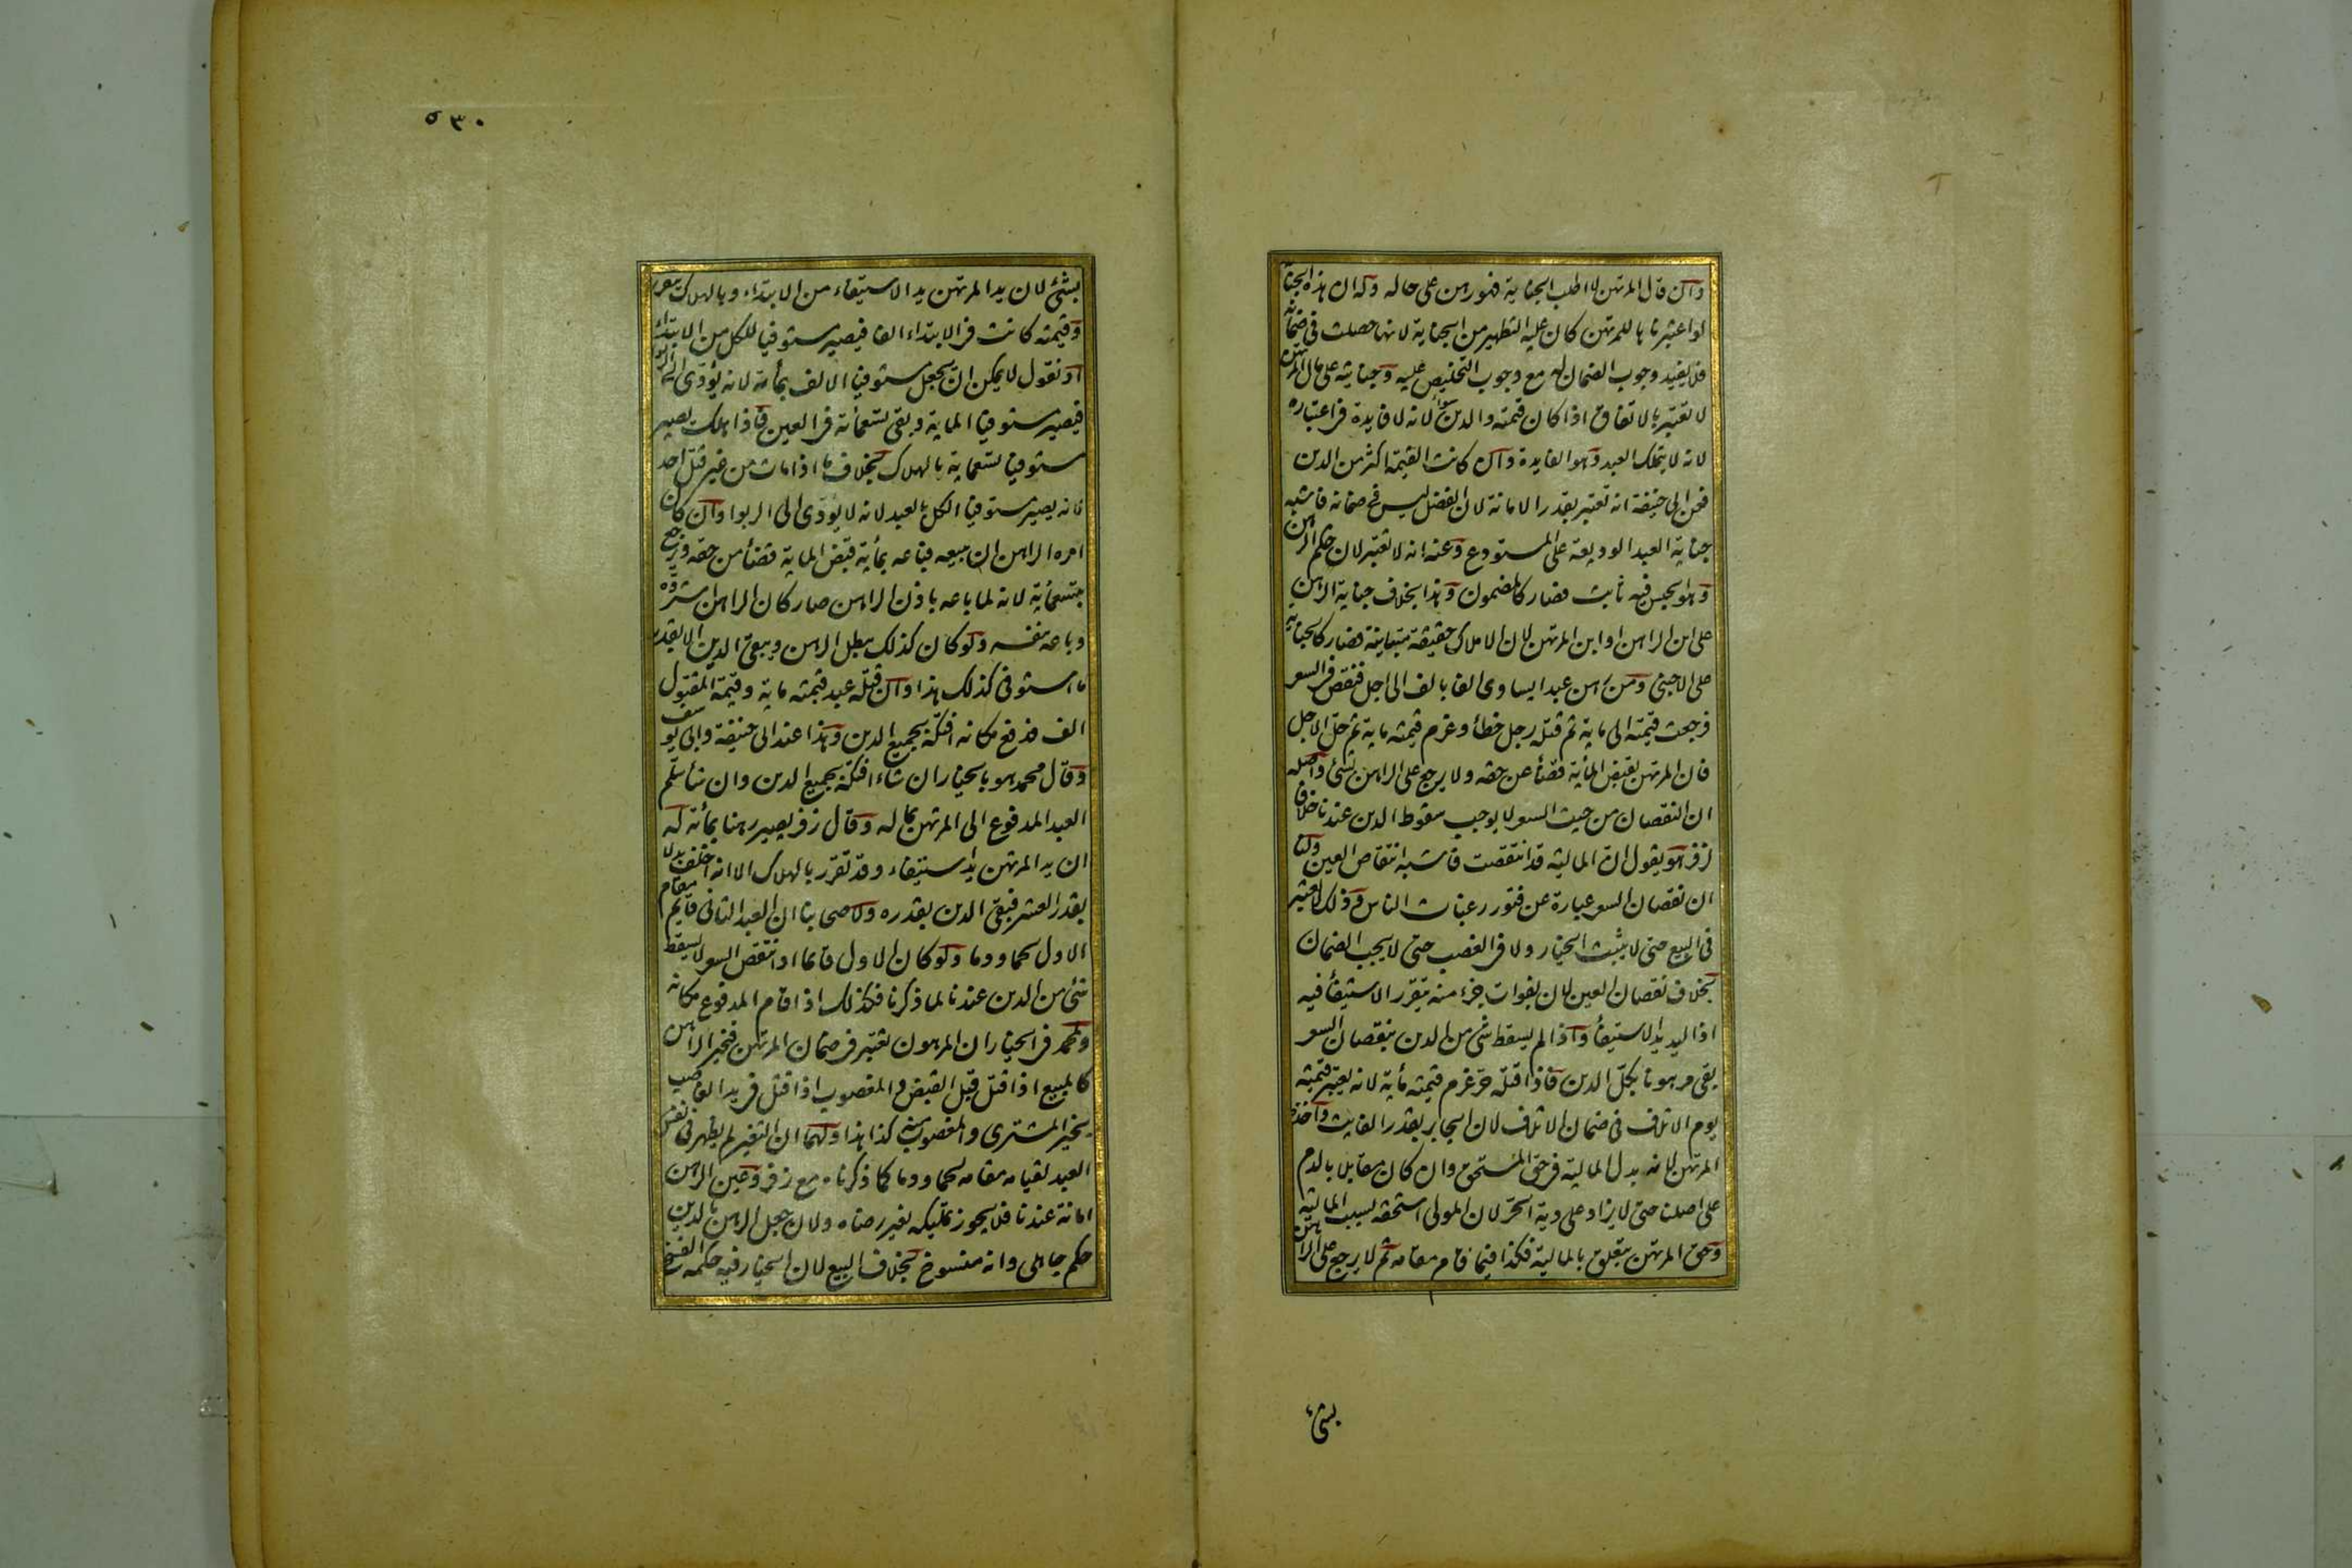 وان قال المرتهن لا اطلب الجناية فهو رهن على حاله وله ان هذه الجناية
لو اعتبرناها للمرتهن كان عليه التطهير من الجناية لانها حصلت فى ضمانه
فلا يفيد وجوب الضمان له مع وجوب التخليص عليه وجنايته على مال المرتهن
لا تعتبر بالاتفاق اذا كان قيمته والدين سواء لانه لا فايدة فى اعتباره
لانه لا يتملك العبد وهو الفايدة وان كانت القيمة اكثر من الدين
فعن ابى حنيفة انه تعتبر بقدر الامانة لان الفضل ليس فى ضمانه فاشبه
جناية العبد الوديعة على المستودع وعنه انه لا تعتبر لان حكم الرهن
وهو الحبس فيه ثابت فصار كالمضمون وهذا بخلاف جناية الراهن
على ابن الراهن او ابن المرتهن لان الاملاك حقيقة متباينة فصار كالجناية
على الاجنبى ومن رهن عبدا يساوى الفا بالف الى اجل فنقص فى السعر
فرجعت قيمته الى ماية ثم قتله رجل خطأ وغرم قيمته ماية ثم حل الاجل
فان المرتهن يقبض المأية قضأ عن حقه ولا يرجع على الراهن بشئ واصله
ان النقصان من حيث السعر لا يوجب سقوط الدين عندنا خلافا
لزفر هو يقول ان المالية قد انتقصت فاشبه انتقاص العين ولنا
ان نقصان السعر عبارة عن فتور رغبات الناس وذلك لا يعتبر
فى البيع حتى لا يثبت الخيار ولا فى الغصب حتى لا يجب الضمان
بخلاف نقصان العين لان بفوات جزء منه يتقرر الاستيفأ فيه
اذ اليد يد الاستيفأ واذا لم يسقط شئ من الدين بنقصان السعر
بقى مرهونا بكل الدين فاذا قتله حر غرم قيمته مأية لانه يعتبر قيمته
يوم الاتلاف فى ضمان الاتلاف لان الجابر بقدر الفايت واخذه
المرتهن لانه بدل المالية فى حق المستحق وان كان مقابلا بالدم
على اصلنا حتى لا يزاد على دية الحر لان المولى استحقه بسبب المالية
وحق المرتهن يتعلق بالمالية فكذا فيما قام مقامه ثم لا يرجع على الراهن
بشئ
٥٣٠
بشئ لان يد المرتهن يد الاستيفاء من الابتداء وبالهلاك يتقرر
وقيمته كانت فى الابتداء الفا فيصير مستوفيا للكل من الابتداء
او نقول لا يمكن ان يجعل مستوفيا الالف بمأة لانه يؤدى الى الربوا
فيصير مستوفيا الماية وبقى تسعمائة فى العين فاذا هلك يصير
مستوفيا تسعماية بالهلاك بخلاف ما اذا مات من غير قتل احد
لانه يصير مستوفيا الكل بالعبد لانه لا يؤدى الى الربوا وان كان
امره الراهن ان يبيعه فباعه بمأية قبض الماية قضأ من حقه ورجع
بتسعمأية لانه لما باعه باذن الراهن صار كان الراهن استرده
وباعه بنفسه ولو كان كذلك يبطل الرهن ويبقى الدين الا بقدر
ما استوفى كذلك هذا وان قتله عبد قيمته ماية وقيمة المقتول
الف فدفع مكانه افتكه بجميع الدين وهذا عند ابى حنيفة وابى يوسف
وقال محمد هو بالخيار ان شاء افتكه بجميع الدين وان شأ سلم
العبد المدفوع الى المرتهن بماله وقال زفر يصير رهنا بمأة له
ان يد المرتهن يد استيفاء وقد تقرر بالهلاك الا انه اخلف بدلا
بقدر العشر فبقى الدين بقدره ولاصحابنا ان العبد الثانى قايم مقام
الاول لحما ودما ولو كان الاول قايما وانتقص السعر لا يسقط
شئ من الدين عندنا لما ذكرنا فكذلك اذا قام المدفوع مكانه
ولمحمد فى الخيار ان المرهون تغير فى ضمان المرتهن فيخير الراهن
كالمبيع اذا قتل قبل القبض والمغصوب اذا قتل فى يد الغاصب
يخير المشترى والمغصوب منه كذا هذا ولهما ان التغير لم يظهر فى نفس
العبد لقيامه مقامه لحما ودما كما ذكرناه مع زفر وعين الرهن
امانة عندنا فلا يجوز تمليكه بغير رضاه ولان جعل الرهن بالدين
حكم جاهلى وانه منسوخ بخلاف البيع لان الخيار فيه حكمه الفسخ